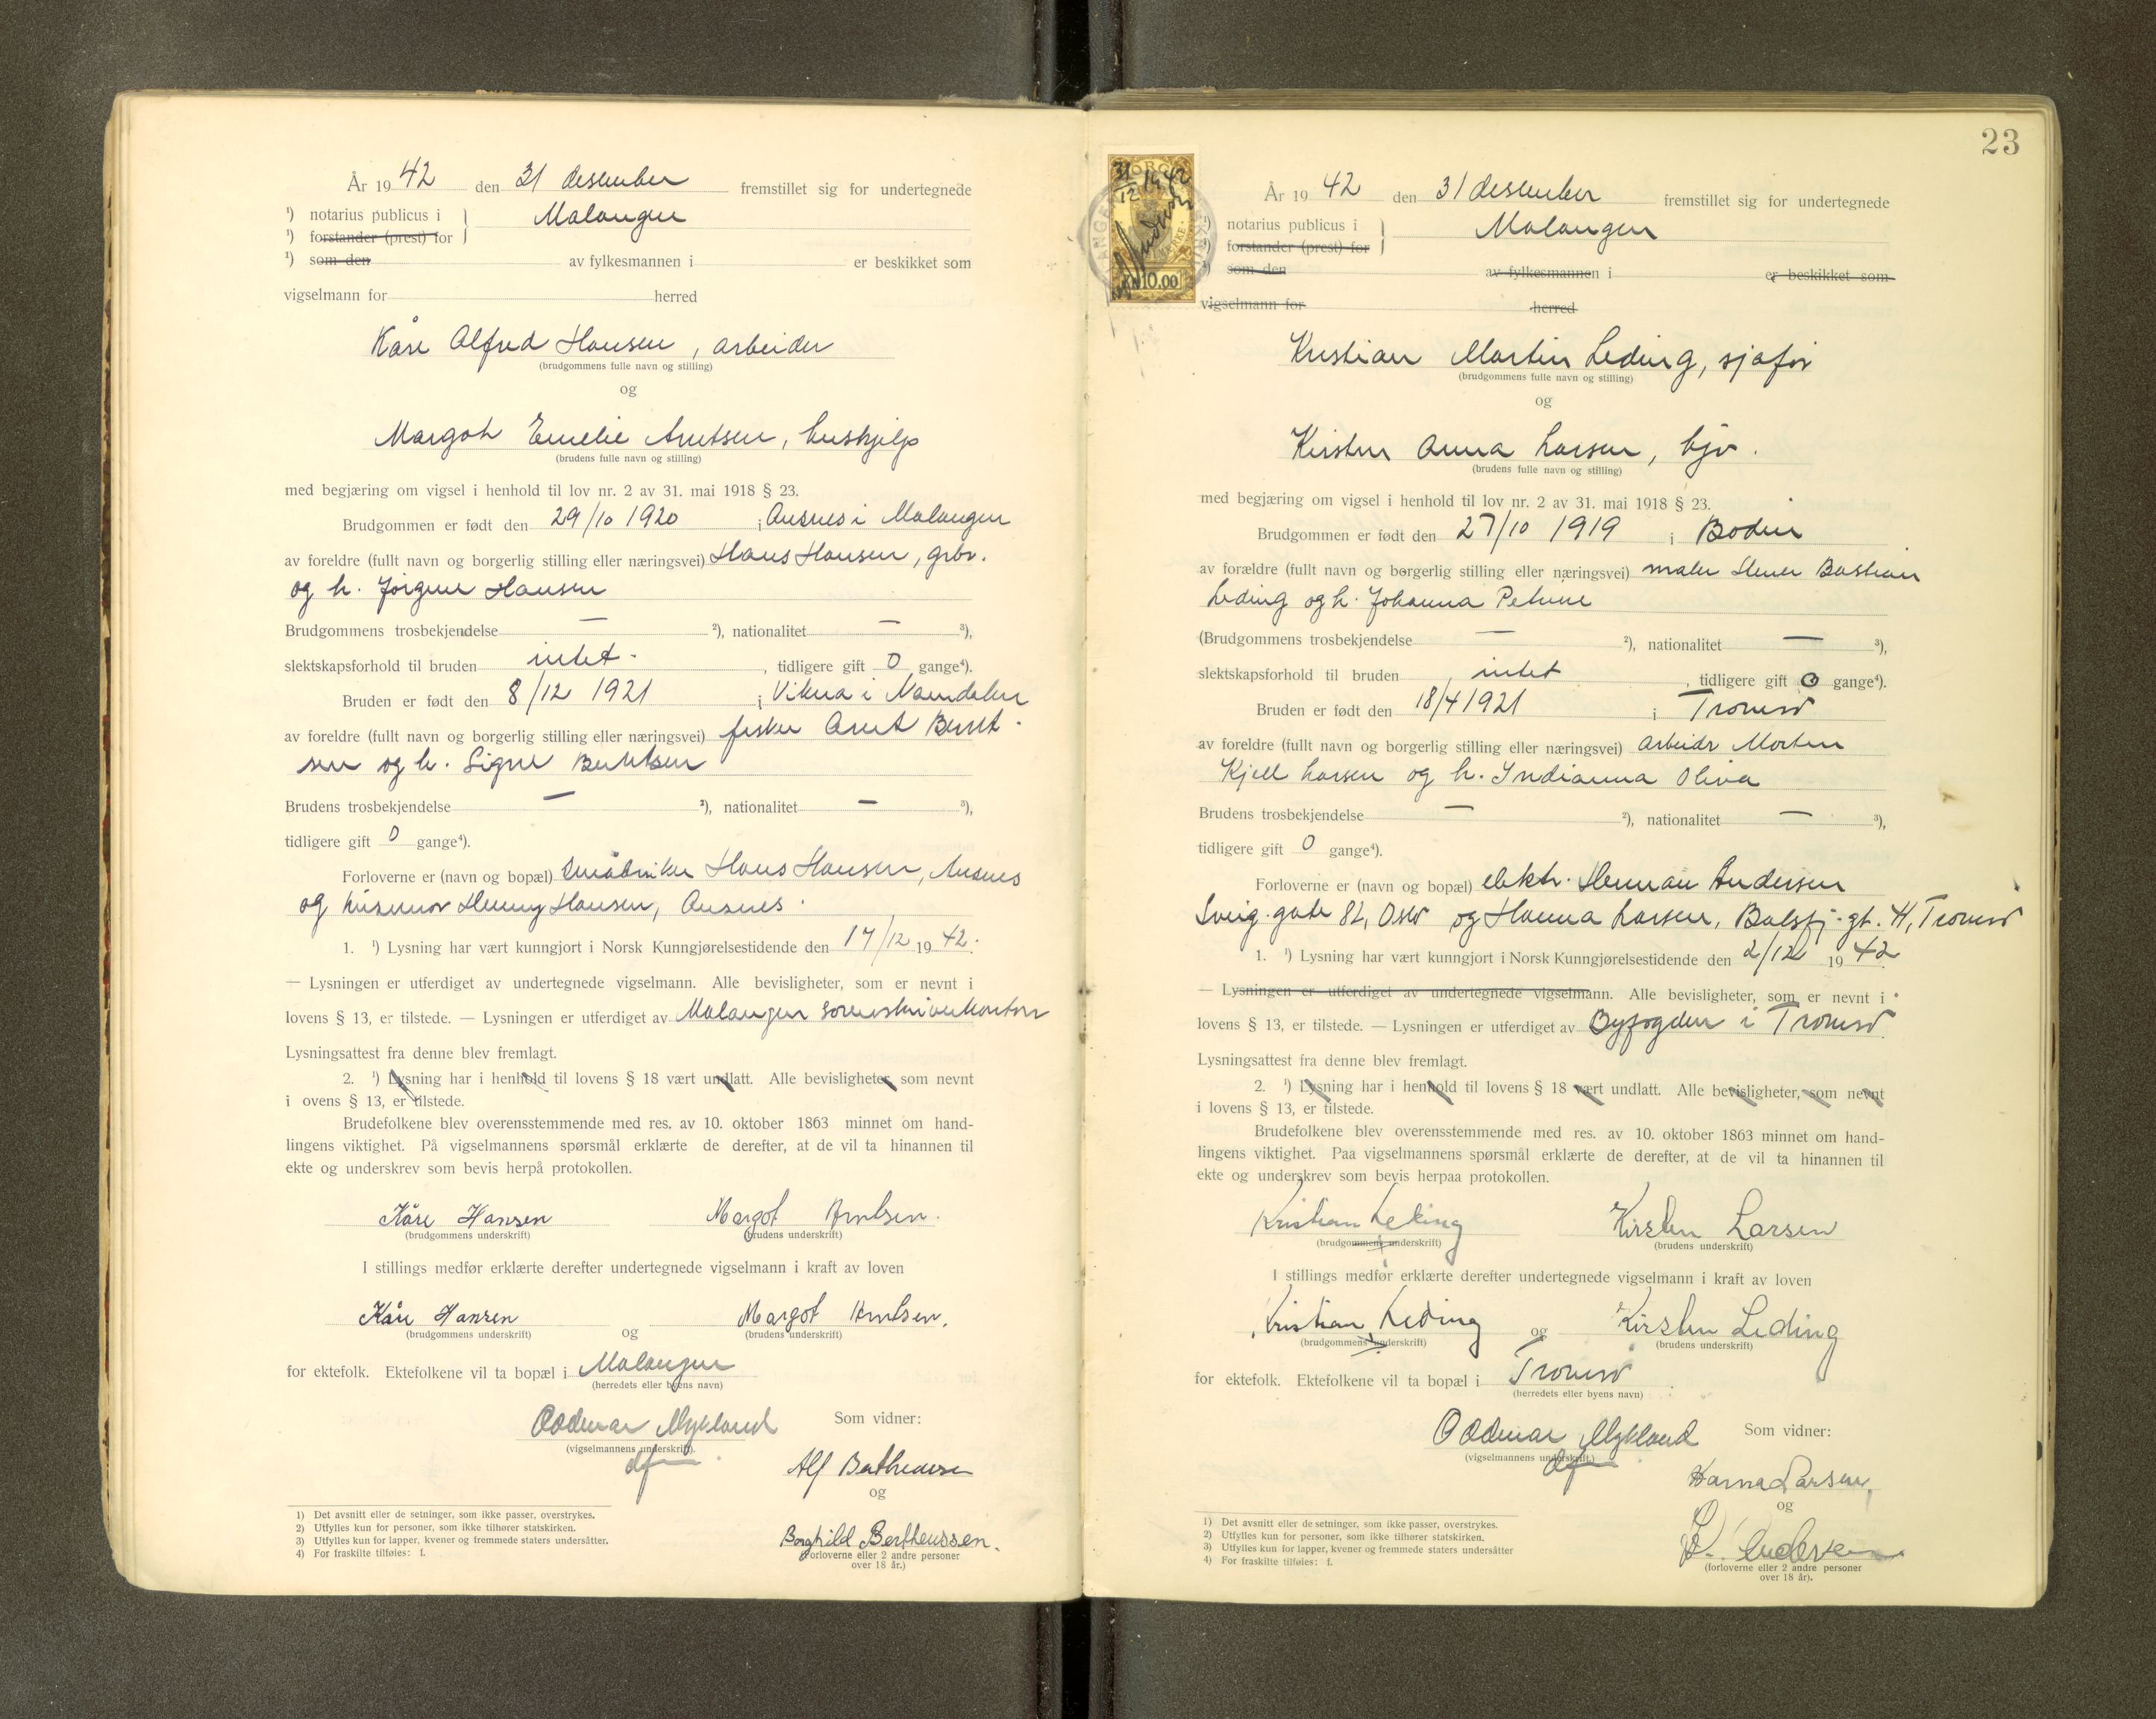 År 19 42 den 31 desember fremstillet sig for undertegnede
¹) notarius publicus i } Malangen
¹) forstander (prest) for
¹) som den av fylkesmannen i er beskikket som
vigselmann for herred
Kåre Alfred Hansen, arbeider
(brudgommens fulle navn og stilling)
og
Margot Emelie Arntsen, hushjelp
(brudens fulle navn og stilling)
med begjæring om vigsel i henhold til lov nr. 2 av 31. mai 1918 § 23.
Brudgommen er født den 29/10 1920 i Ansnes i Malangen
av foreldre (fullt navn og borgerlig stilling eller næringsvei) Hans Hansen, grbr.
og h. Jørgine Hansen
Brudgommens trosbekjendelse — ²), nationalitet — ³),
slektskapsforhold til bruden intet. , tidligere gift 0 gange⁴).
Bruden er født den 8/12 1921 i Vikna i Namdalen
av foreldre (fullt navn og borgerlig stilling eller næringsvei) fisker Arnt Bernt-
sen og h. Signe Berntsen
Brudens trosbekjendelse — ²), nationalitet — ³),
tidligere gift 0 gange⁴).
Forloverne er (navn og bopæl) småbruker Hans Hansen, Ansnes
og husmor Henny Hansen, Ansnes.
1. ¹) Lysning har vært kunngjort i Norsk Kunngjørelsestidende den 17/12 19 42.
— Lysningen er utferdiget av undertegnede vigselmann. Alle bevisligheter, som er nevnt i
lovens § 13, er tilstede. — Lysningen er utferdiget av Malangen sorenskriverkontor
Lysningsattest fra denne blev fremlagt.
2. ¹) Lysning har i henhold til lovens § 18 vært undlatt. Alle bevisligheter, som nevnt
i ovens § 13, er tilstede.
Brudefolkene blev overensstemmende med res. av 10. oktober 1863 minnet om hand-
lingens viktighet. På vigselmannens spørsmål erklærte de derefter, at de vil ta hinannen til
ekte og underskrev som bevis herpå protokollen.
Kåre Hansen Margot Arntsen.
(brudgommens underskrift) (brudens underskrift)
I stillings medfør erklærte derefter undertegnede vigselmann i kraft av loven
Kåre Hansen Margot Arntsen.
(brudgommens underskrift) og (brudens underskrift)
for ektefolk. Ektefolkene vil ta bopæl i Malangen
(herredets eller byens navn)
Oddmar Mykland Som vidner:
(vigselmannens underskrift).
df
Alf Bertheussen
og
Borghild Bertheussen.
(forloverne eller 2 andre personer
over 18 år.)
1) Det avsnitt eller de setninger, som ikke passer, overstrykes.
2) Utfylles kun for personer, som ikke tilhører statskirken.
3) Utfylles kun for lapper, kvener og fremmede staters undersåtter.
4) For fraskilte tilføies: f.
23
NORGE
31/12 1942
Kr. 10.00
År 19 42 den 31 desember fremstillet sig for undertegnede
¹) notarius publicus i } Malangen
¹) forstander (prest) for
¹) som den av fylkesmannen i er beskikket som
vigselmann for herred
Kristian Martin Leding, sjåfør
(brudgommens fulle navn og stilling)
og
Kirsten Anna Larsen, hjv.
(brudens fulle navn og stilling)
med begjæring om vigsel i henhold til lov nr. 2 av 31. mai 1918 § 23.
Brudgommen er født den 27/10 1919 i Bodin
av forældre (fullt navn og borgerlig stilling eller næringsvei) maler Bastian
Leding og h. Johanna Petrine
(Brudgommens trosbekjendelse — ²), nationalitet — ³),
slektskapsforhold til bruden intet , tidligere gift 0 gange⁴).
Bruden er født den 18/4 1921 i Tromsø
av foreldre (fullt navn og borgerlig stilling eller næringsvei) arbeidr Morten
Kjell Larsen og h. Indianna Oliva
Brudens trosbekjendelse — ²), nationalitet — ³),
tidligere gift 0 gange⁴).
Forloverne er (navn og bopæl) elektr. Herman Andersen
gate 82, Oslo og Hanna Larsen, Balsfj.gt. Tromsø
1. ¹) Lysning har vært kunngjort i Norsk Kunngjørelsestidende den 2/12 19 42
— Lysningen er utferdiget av undertegnede vigselmann. Alle bevisligheter, som er nevnt i
lovens § 13, er tilstede. — Lysningen er utferdiget av Byfogden i Tromsø
Lysningsattest fra denne blev fremlagt.
2. ¹) Lysning har i henhold til lovens § 18 vært undlatt. Alle bevisligheter, som nevnt
i lovens § 13, er tilstede.
Brudefolkene blev overensstemmende med res. av 10. oktober 1863 minnet om hand-
lingens viktighet. Paa vigselmannens spørsmål erklærte de derefter, at de vil ta hinannen til
ekte og underskrev som bevis herpaa protokollen.
Kristian Leding Kirsten Larsen
(brudgommens underskrift) (brudens underskrift)
I stillings medfør erklærte derefter undertegnede vigselmann i kraft av loven
Kristian Leding og Kirsten Leding
(brudgommens underskrift) (brudens underskrift)
for ektefolk. Ektefolkene vil ta bopæl i Tromsø
(herredets eller byens navn)
Oddmar Mykland Som vidner:
(vigselmannens underskrift.)
df
Hanna Larsen,
og
Andersen
(forloverne eller 2 andre personer
over 18 år).
1) Det avsnitt eller de setninger, som ikke passer, overstrykes.
2) Utfylles kun for personer, som ikke tilhører statskirken.
3) Utfylles kun for lapper, kvener og fremmede staters undersåtter
4) For fraskilte tilføies: f.